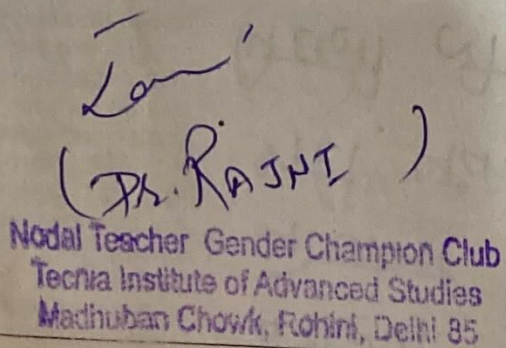 (DR. RAJNI)
Nodal Teacher Gender Champion Club
Tecnia Institute of Advanced Studies
Madhuban Chowk, Rohini, Delhi 85